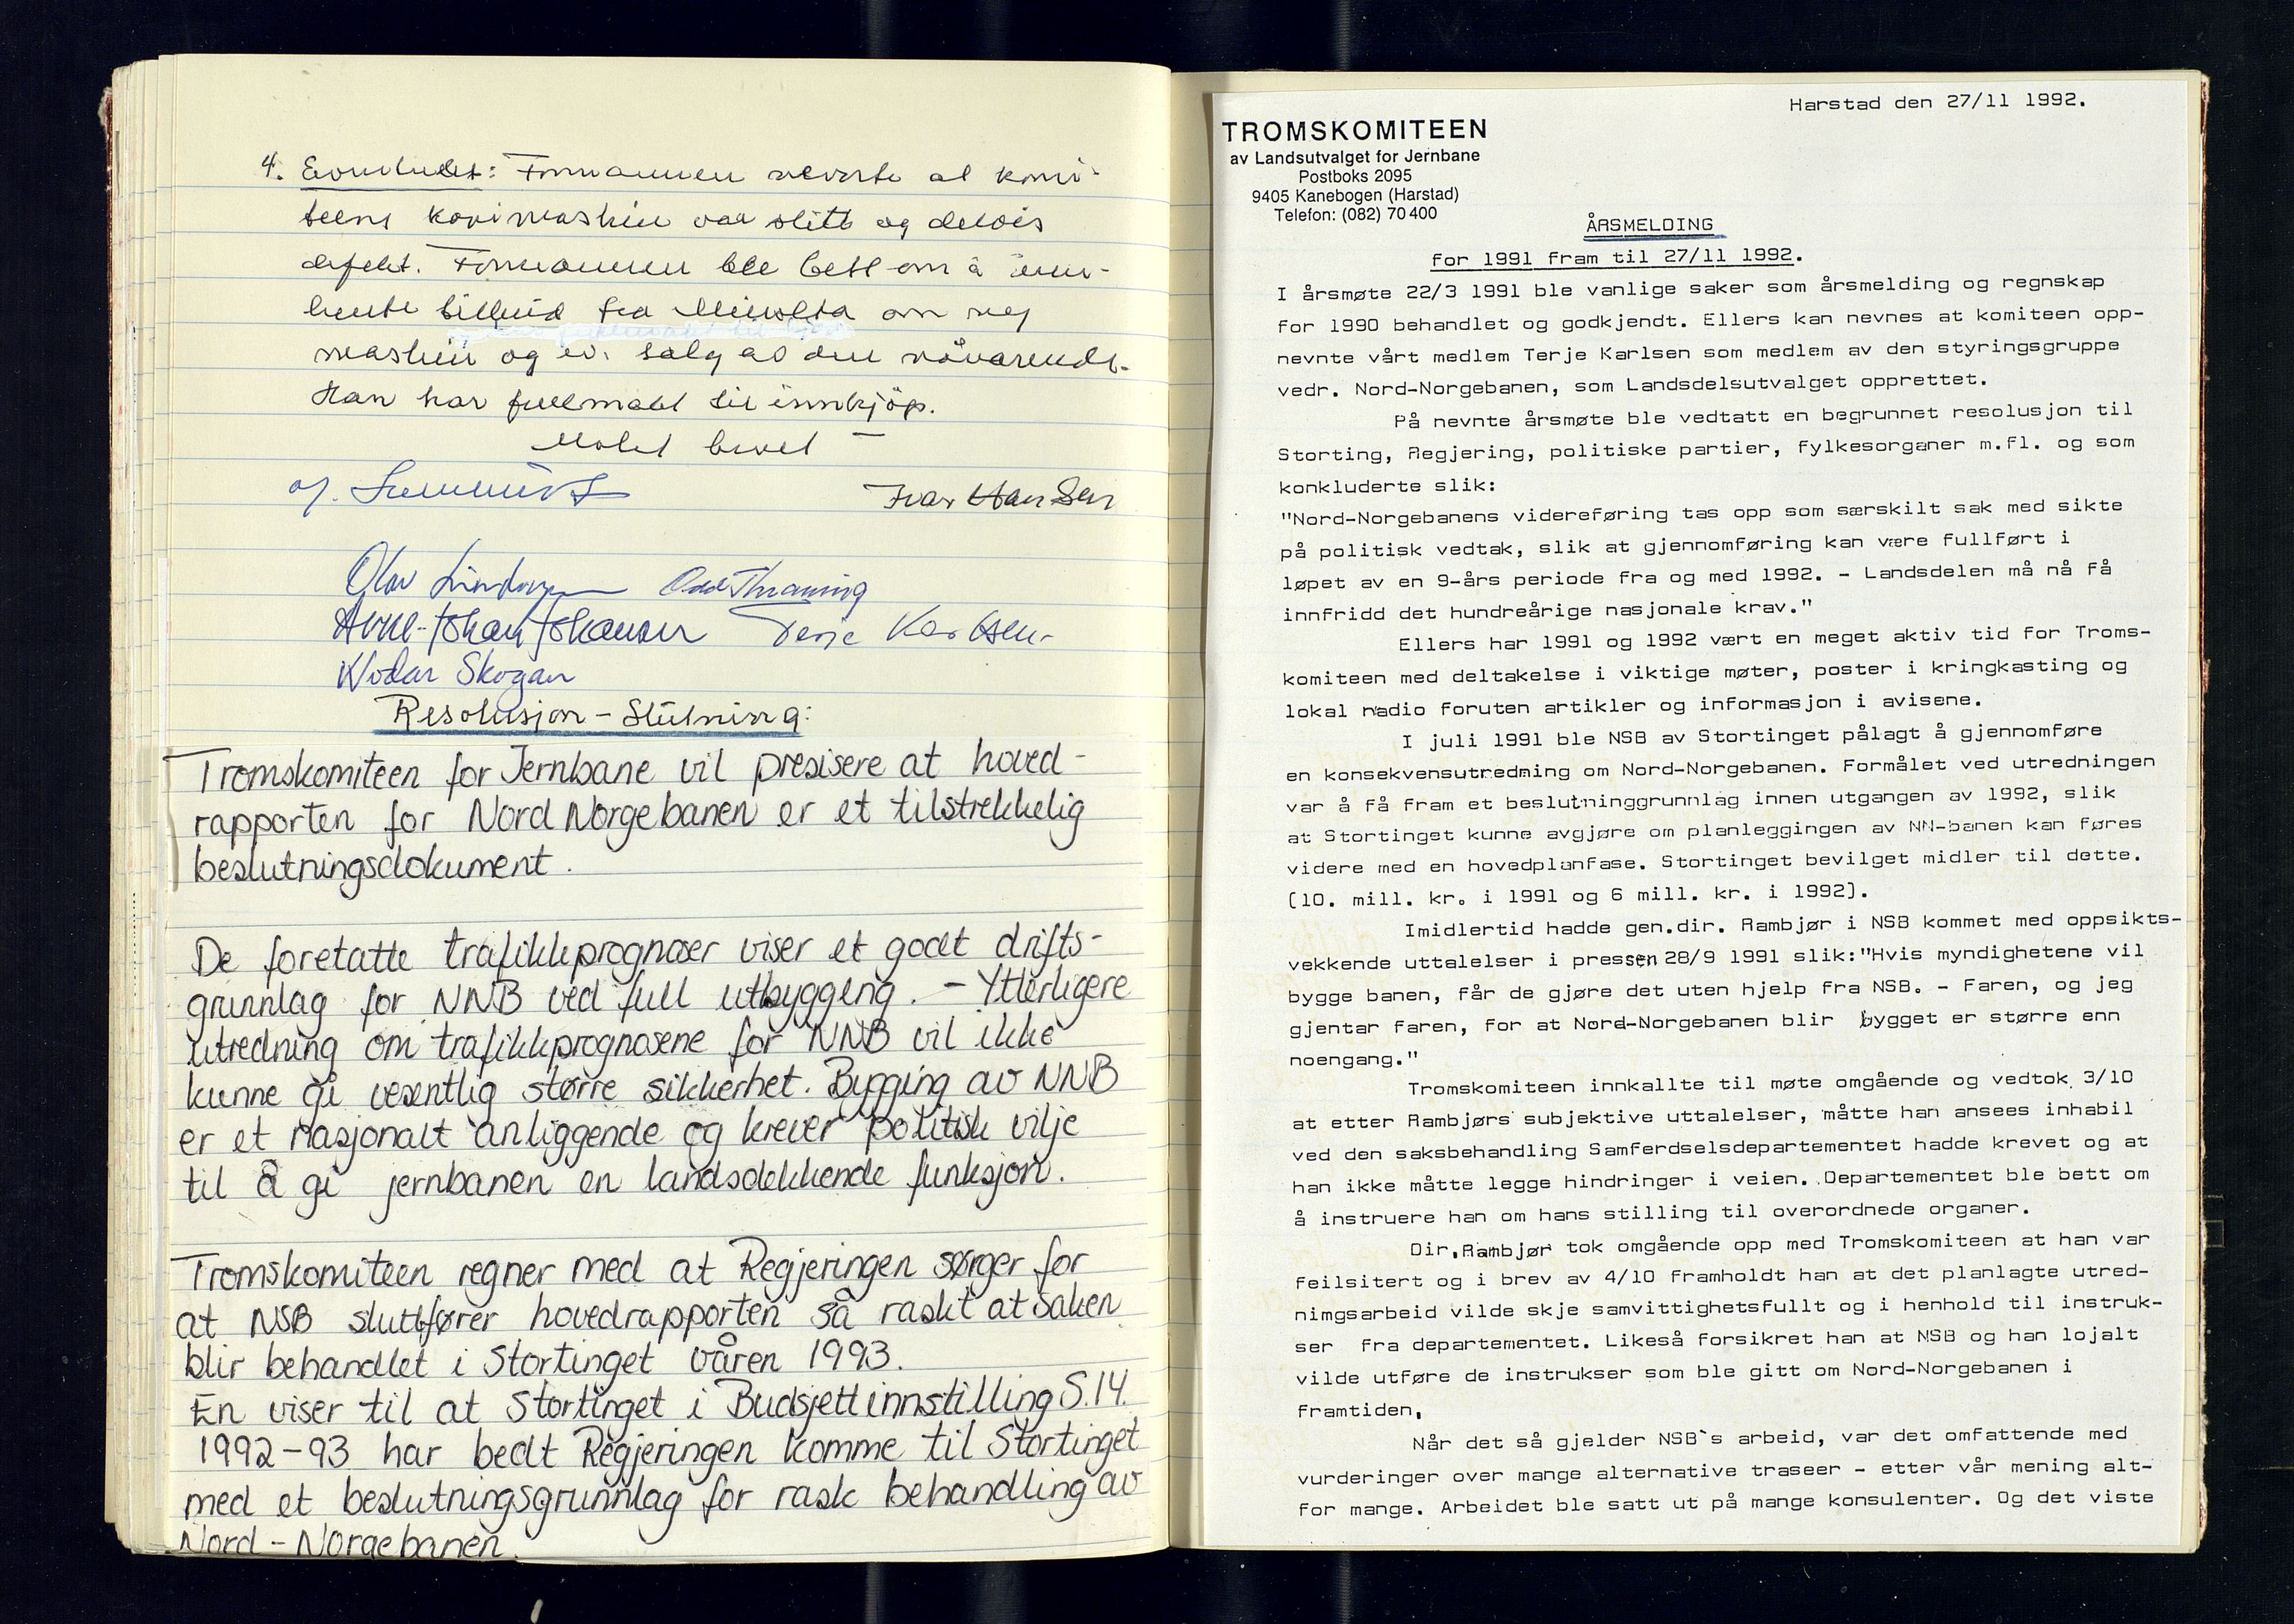 4. Eventuelt: Formannen nevnte at komi-
teens kopimaskin var slitt og delvis
defekt. Formannen ble bett om å inn-
hente tilbud fra Minolta om ny
maskin og ev. salg av den nåværende.
Han har fullmakt til innkjøp.
Møtet hevet –
Ivar Hansen
Olav Odd Thraning
Arne-Johan Johansen Terje Karlsen
Vidar Skogan
Resolusjon – Slutning:
Tromskomiteen for Jernbane vil presisere at hoved-
rapporten for Nord Norgebanen er et tilstrekkelig
beslutningsdokument.
De foretatte trafikkprognoser viser et godt drifts-
grunnlag for NNB ved full utbygging. – Ytterligere
utredning om trafikkprognosene for NNB vil ikke
kunne gi vesentlig større sikkerhet. Bygging av NNB
er et nasjonalt anliggende og krever politisk vilje
til å gi jernbanen en landsdekkende funksjon.
Tromskomiteen regner med at Regjeringen sørger for
at NSB sluttfører hovedrapporten så raskt at saken
blir behandlet i Stortinget våren 1993.
En viser til at Stortinget i Budsjettinnstilling S.14.
1992-93 har bedt Regjeringen komme til Stortinget
med et beslutningsgrunnlag for rask behandling av
Nord-Norgebanen.
Harstad den 27/11 1992.
TROMSKOMITEEN
av Landsutvalget for Jernbane
Postboks 2095
9405 Kanebogen (Harstad)
Telefon: (082) 70 400
ÅRSMELDING
for 1991 fram til 27/11 1992.
I årsmøte 22/3 1991 ble vanlige saker som årsmelding og regnskap
for 1990 behandlet og godkjendt. Ellers kan nevnes at komiteen opp-
nevnte vårt medlem Terje Karlsen som medlem av den styringsgruppe
vedr. Nord-Norgebanen, som Landsdelsutvalget opprettet.
På nevnte årsmøte ble vedtatt en begrunnet resolusjon til
Storting, Regjering, politiske partier, fylkesorganer m.fl. og som
konkluderte slik:
"Nord-Norgebanens videreføring tas opp som særskilt sak med sikte
på politisk vedtak, slik at gjennomføring kan være fullført i
løpet av en 9-års periode fra og med 1992. - Landsdelen må nå få
innfridd det hundreårige nasjonale krav."
Ellers har 1991 og 1992 vært en meget aktiv tid for Troms-
komiteen med deltakelse i viktige møter, poster i kringkasting og
lokal radio foruten artikler og informasjon i avisene.
I juli 1991 ble NSB av Stortinget pålagt å gjennomføre
en konsekvensutredning om Nord-Norgebanen. Formålet ved utredningen
var å få fram et beslutninggrunnlag innen utgangen av 1992, slik
at Stortinget kunne avgjøre om planleggingen av NN-banen kan føres
videre med en hovedplanfase. Stortinget bevilget midler til dette.
(10. mill. kr. i 1991 og 6 mill. kr. i 1992).
Imidlertid hadde gen.dir. Rambjør i NSB kommet med oppsikts-
vekkende uttalelser i pressen 28/9 1991 slik:"Hvis myndighetene vil
bygge banen, får de gjøre det uten hjelp fra NSB. - Faren, og jeg
gjentar faren, for at Nord-Norgebanen blir bygget er større enn
noengang."
Tromskomiteen innkallte til møte omgående og vedtok 3/10
at etter Rambjørs subjektive uttalelser, måtte han ansees inhabil
ved den saksbehandling Samferdselsdepartementet hadde krevet og at
han ikke måtte legge hindringer i veien. Departementet ble bett om
å instruere han om hans stilling til overordnede organer.
Dir. Rambjør tok omgående opp med Tromskomiteen at han var
feilsitert og i brev av 4/10 framholdt han at det planlagte utred-
nimgsarbeid vilde skje samvittighetsfullt og i henhold til instruk-
ser fra departementet. Likeså forsikret han at NSB og han lojalt
vilde utføre de instrukser som ble gitt om Nord-Norgebanen i
framtiden,
Når det så gjelder NSB`s arbeid, var det omfattende med
vurderinger over mange alternative traseer - etter vår mening alt-
for mange. Arbeidet ble satt ut på mange konsulenter. Og det viste